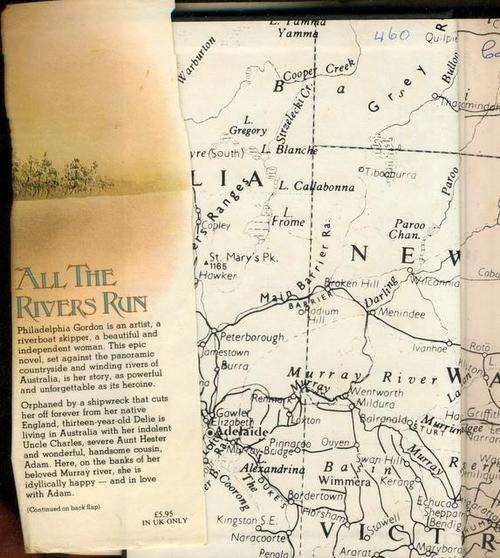 ALL THE
RIVERS RUN
Philadelphia Gordon is an artist, a
riverboat skipper, a beautiful and
independent woman. This epic
novel, set against the panoramic
countryside and winding rivers of
Australia, is her story, as powerful
and unforgettable as its heroine.
Orphaned by a shipwreck that cuts
her off forever from her native
England, thirteen-year-old Delie is
living in Australia with her indolent
Uncle Charles, severe Aunt Hester
and wonderful, handsome cousin,
Adam. Here, on the banks of her
beloved Murray river, she is
idyllically happy — and in love
with Adam.
(Continued on back flap)
£5.95
IN UK ONLY
L. Yamma
Yamma
460
Quilpie
Warburton
Cooper Creek
B a
Grey R
Bulloo
Thargomindah
Strzelecki Cr.
L.
Gregory
L. Blanche
yre (South)
Tibooburra
LIA
L. Callabonna
Paroo
ers Ranges
L.
Frome
Copley
Paroo
Chan.
St. Mary's Pk.
1165
Hawker
NEW
Main Barrier Ra.
BARRIER
Broken Hill
Wilcannia
Coba
Darling
Radium
Hill
Menindee
Peterborough
Ivanhoe
Roto
Jamestown
Burra
Murray River
Renmark
Murray
Wentworth
Mildura
Gawler
Elizabeth
Loxton
Balranald
STURT
Adelaide
Pinnaroo
Ouyen
Murray Bridge
Swan Hill
Murray
Alexandrina
Basin
Wimmera
Kerang
The Coorong
DUKES
Bordertown
Horsham
Echuca
Shepparton
Bendigo
Kingston S.E.
VICT
Stawell
Naracoorte
Ararat
Maryboro
Penola